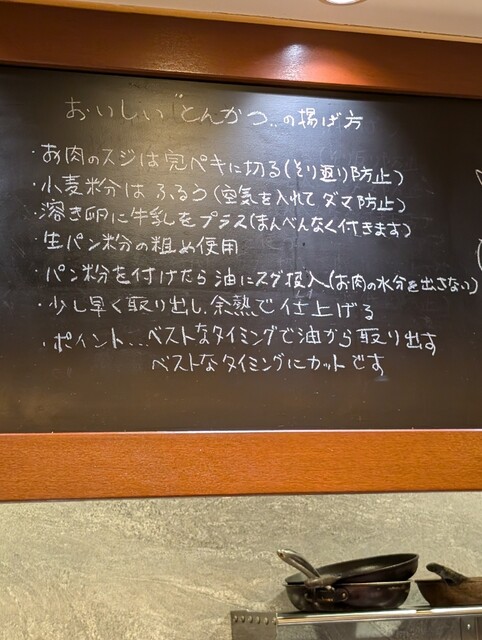 おいしい"とんかつ"の揚げ方
・お肉のスジは完ペキに切る(そり返り防止)
・小麦粉分は ふるう(空気を入れて ダマ防止)
・溶き卵に牛乳をプラス(まんべんなく付きます)
・生パン粉の粗め使用
・パン粉を付けたら油にスグ投入(お肉の水分を出さない)
・少し早く取り出し、余熱で仕上げる
・ポイント…ベストなタイミングで油から取り出す
ベストなタイミングにカットです